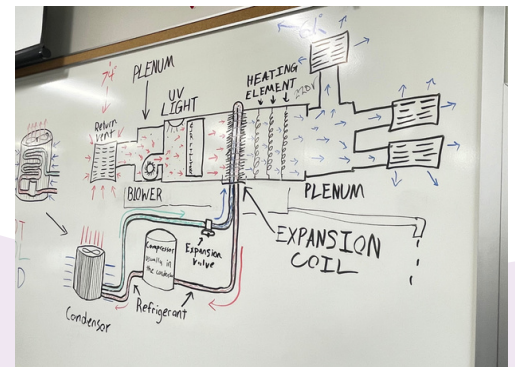 74°
68°
PLENUM
HEATING
ELEMENT
220V
UV
LIGHT
Return
vent
BLOWER
PLENUM
EXPANSION
COIL
Expansion
Valve
Compressor
usually in
the condensor
Refrigerant
Condensor